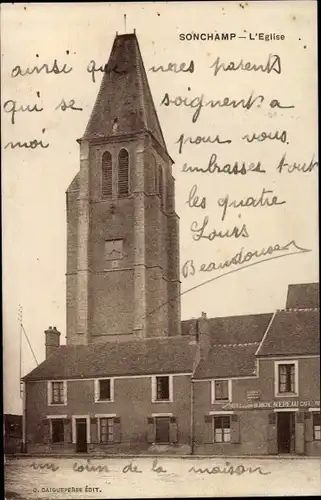 SONCHAMP — L'Eglise
ainsi que nos parents
qui se soignent a
moi pour vous
embrasses tout
les quatre
Louis
Beaudouser
NEREAU
CAFÉ
un coin de la maison
C. DAIGUEPERSE ÉDIT.